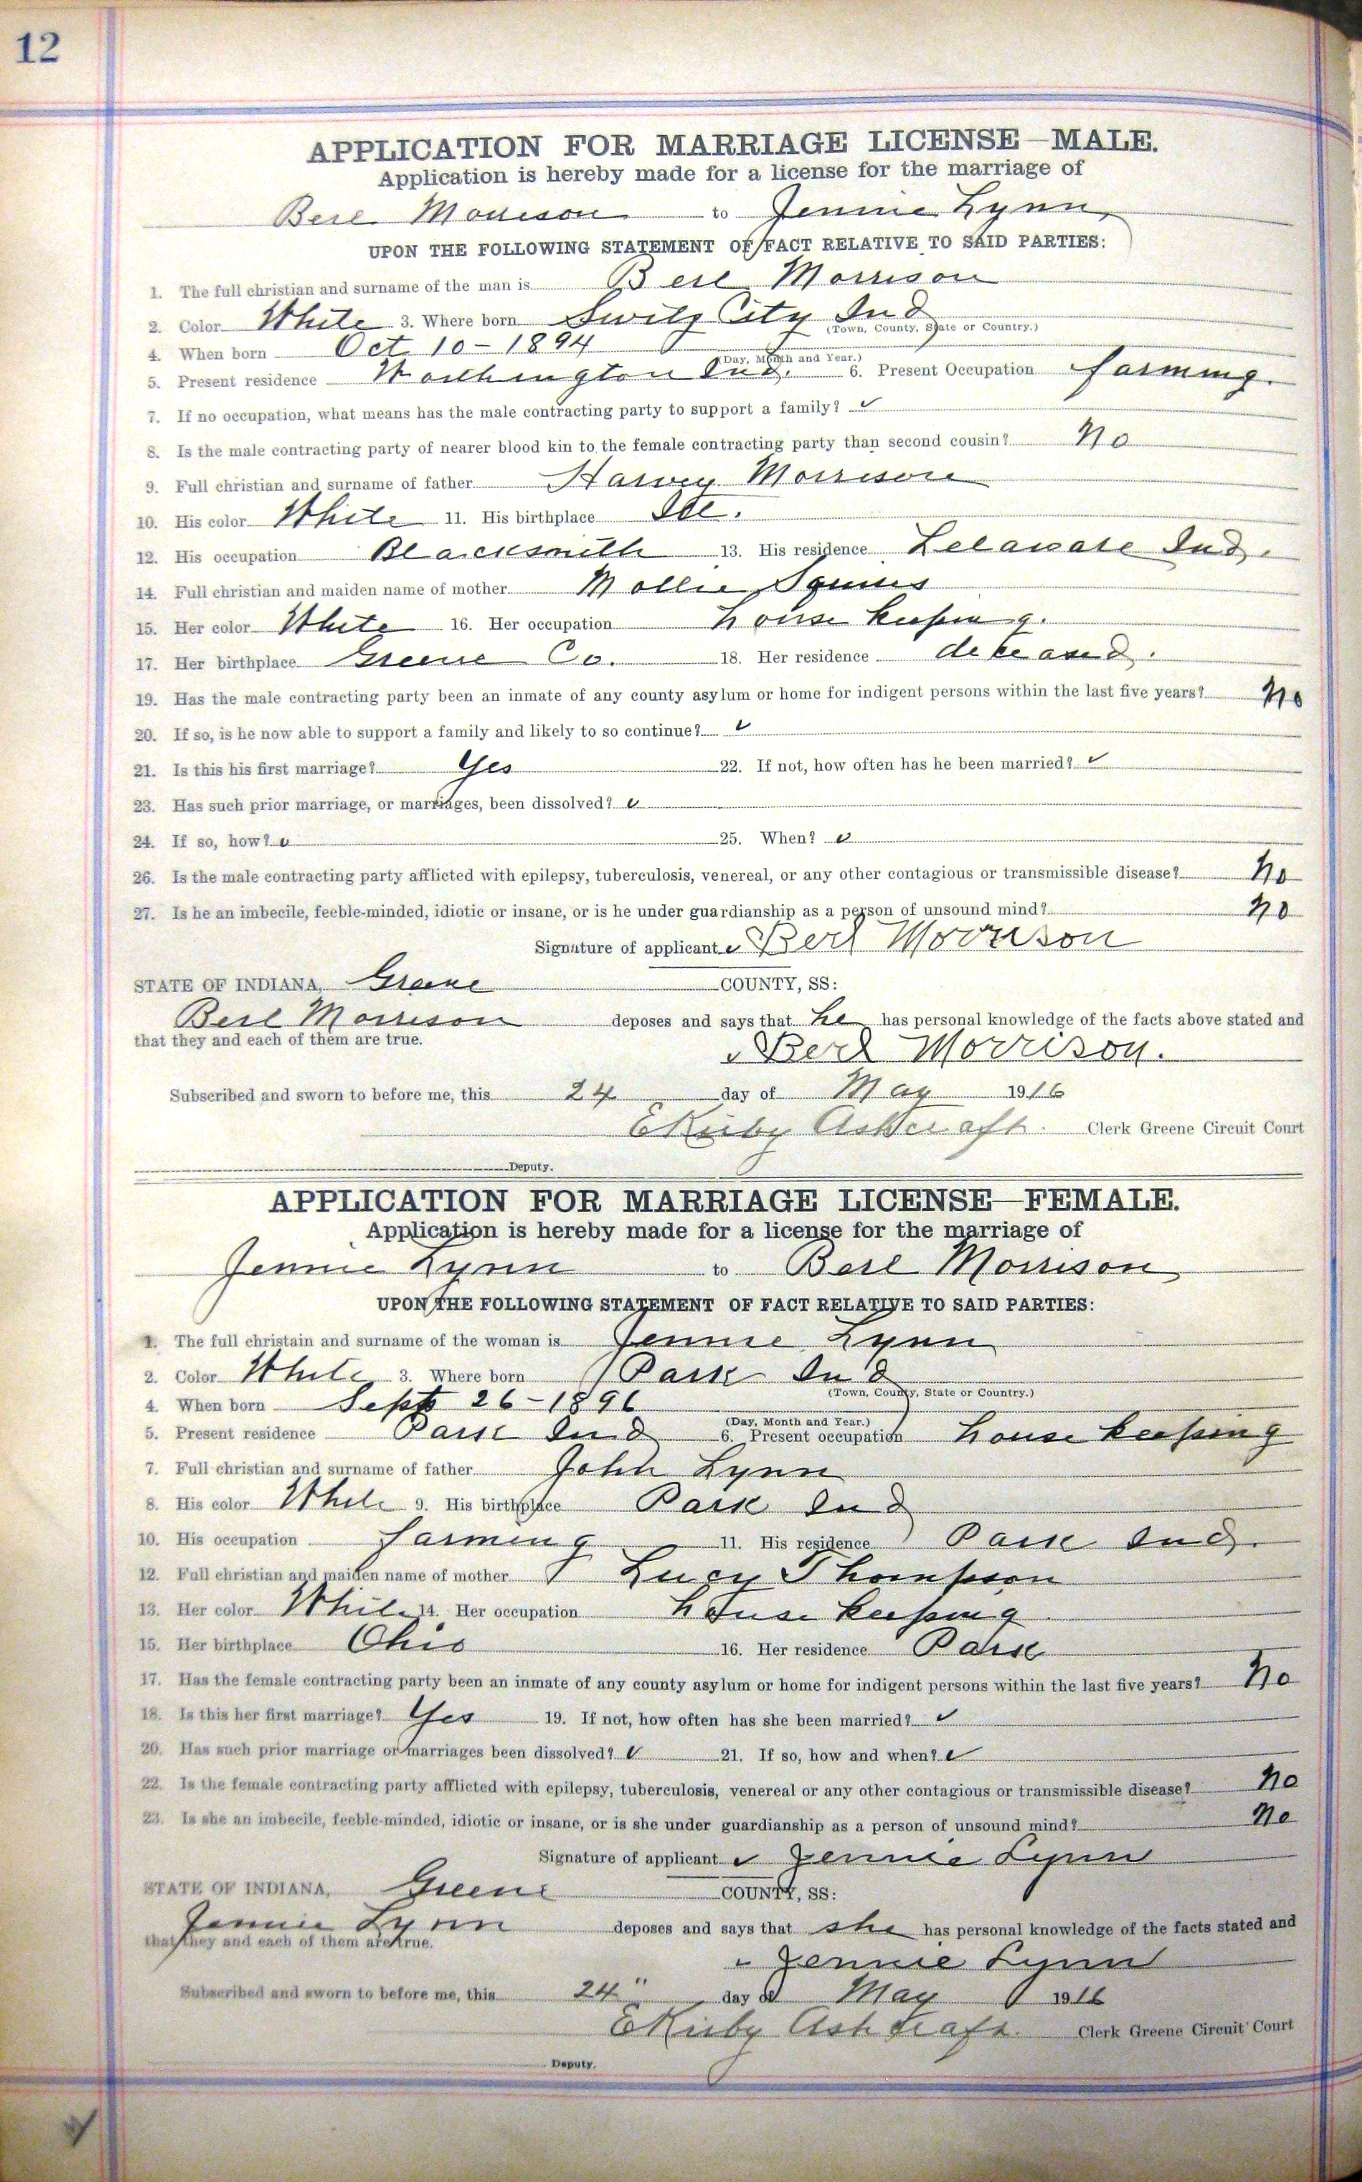 12
APPLICATION FOR MARRIAGE LICENSE—MALE.
Application is hereby made for a license for the marriage of
Berl Morrison to Jennie Lynn,
UPON THE FOLLOWING STATEMENT OF FACT RELATIVE TO SAID PARTIES:
1. The full christian and surname of the man is Berl Morrison
2. Color White 3. Where born Switz City Ind
(Town, County, State or Country.)
4. When born Oct 10-1894
(Day, Month and Year.)
5. Present residence Worthington Ind. 6. Present Occupation farming.
7. If no occupation, what means has the male contracting party to support a family? ✓
8. Is the male contracting party of nearer blood kin to the female contracting party than second cousin? No
9. Full christian and surname of father Harvey Morrison
10. His color White 11. His birthplace Ill.
12. His occupation Blacksmith 13. His residence Delaware Ind.
14. Full christian and maiden name of mother Mollie Squires
15. Her color White 16. Her occupation house keeping.
17. Her birthplace Greene Co. 18. Her residence deceased.
19. Has the male contracting party been an inmate of any county asylum or home for indigent persons within the last five years? No
20. If so, is he now able to support a family and likely to so continue? ✓
21. Is this his first marriage? Yes 22. If not, how often has he been married? ✓
23. Has such prior marriage, or marriages, been dissolved? ✓
24. If so, how? ✓ 25. When? ✓
26. Is the male contracting party afflicted with epilepsy, tuberculosis, venereal, or any other contagious or transmissible disease? No
27. Is he an imbecile, feeble-minded, idiotic or insane, or is he under guardianship as a person of unsound mind? No
Signature of applicant ✓ Berl Morrison
STATE OF INDIANA, Greene COUNTY, SS:
Berl Morrison deposes and says that he has personal knowledge of the facts above stated and
that they and each of them are true.
✓ Berl Morrison.
Subscribed and sworn to before me, this 24 day of May 1916
E Kirby Ashcraft. Clerk Greene Circuit Court
Deputy.
APPLICATION FOR MARRIAGE LICENSE—FEMALE.
Application is hereby made for a license for the marriage of
Jennie Lynn to Berl Morrison
UPON THE FOLLOWING STATEMENT OF FACT RELATIVE TO SAID PARTIES:
1. The full christain and surname of the woman is Jennie Lynn
2. Color White 3. Where born Park Ind
(Town, County, State or Country.)
4. When born Sept 26-1896
(Day, Month and Year.)
5. Present residence Park Ind 6. Present occupation house keeping
7. Full christian and surname of father John Lynn
8. His color White 9. His birthplace Park Ind
10. His occupation farming 11. His residence Park Ind.
12. Full christian and maiden name of mother Lucy Thompson
13. Her color White 14. Her occupation house keeping
15. Her birthplace Ohio 16. Her residence Park
17. Has the female contracting party been an inmate of any county asylum or home for indigent persons within the last five years? No
18. Is this her first marriage? Yes 19. If not, how often has she been married? ✓
20. Has such prior marriage or marriages been dissolved? ✓ 21. If so, how and when? ✓
22. Is the female contracting party afflicted with epilepsy, tuberculosis, venereal or any other contagious or transmissible disease? No
23. Is she an imbecile, feeble-minded, idiotic or insane, or is she under guardianship as a person of unsound mind? No
Signature of applicant ✓ Jennie Lynn
STATE OF INDIANA, Greene COUNTY, SS:
Jennie Lynn deposes and says that she has personal knowledge of the facts stated and
that they and each of them are true.
Jennie Lynn
Subscribed and sworn to before me, this 24" day of May 1916
E Kirby Ashcraft. Clerk Greene Circuit Court
Deputy.